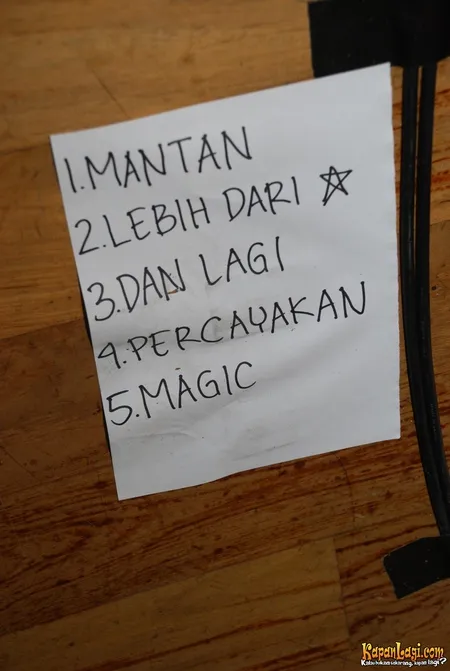 1. MANTAN
2. LEBIH DARI ☆
3. DAN LAGI
4. PERCAYAKAN
5. MAGIC
KapanLagi.com
Kalau bukan sekarang, kapan lagi?